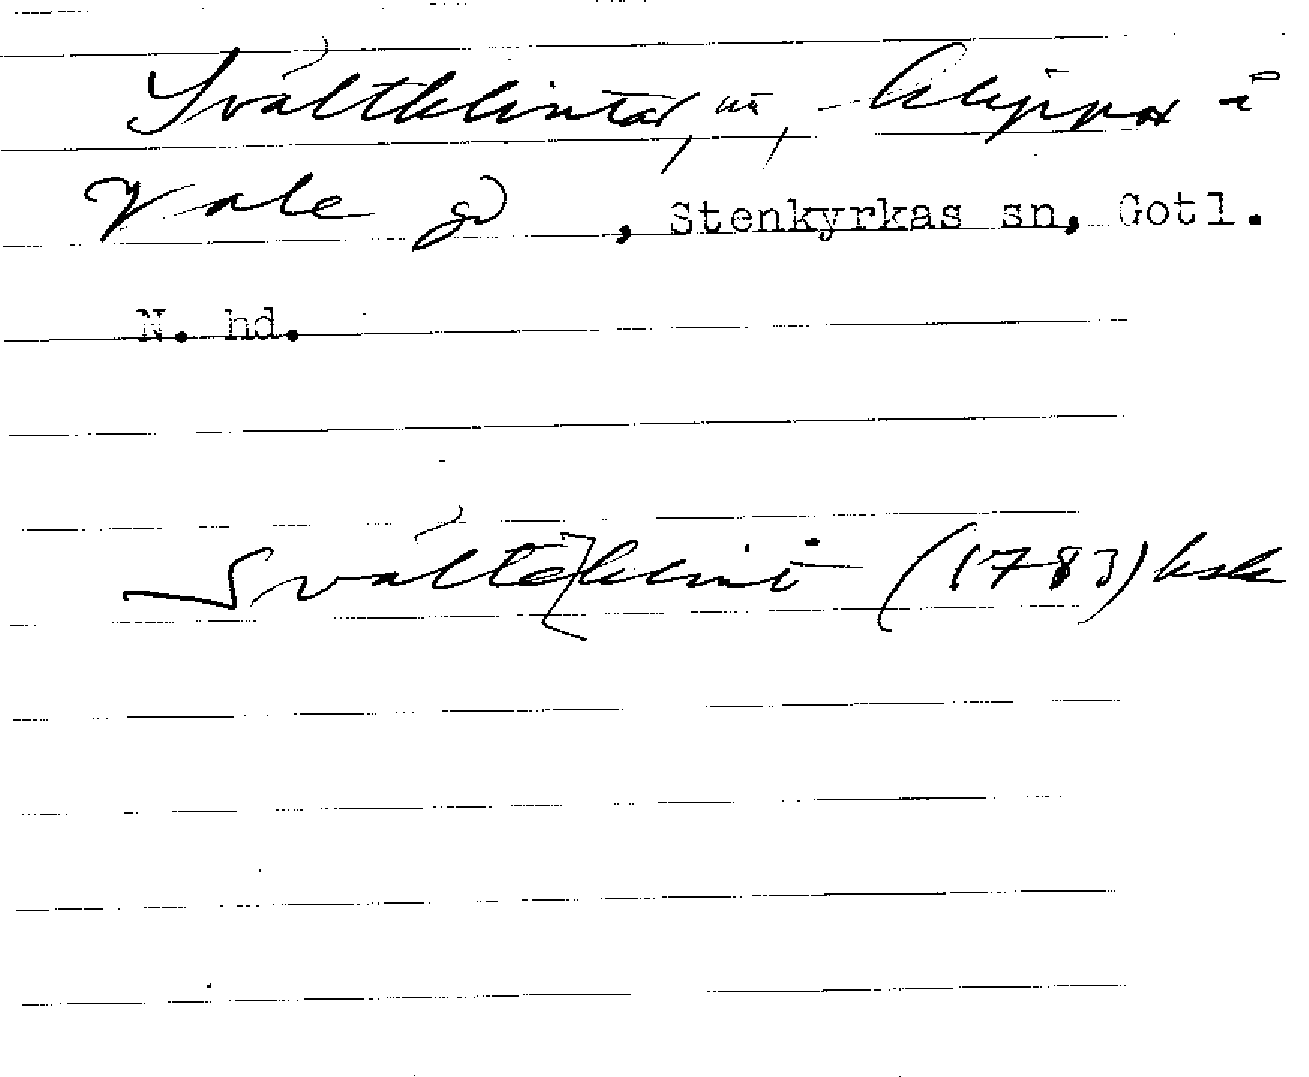 Svältklintar, nä, - klippor i
Vale gd, Stenkyrkas sn, Gotl.
N. hd.
Svälte klint (1783) ksk